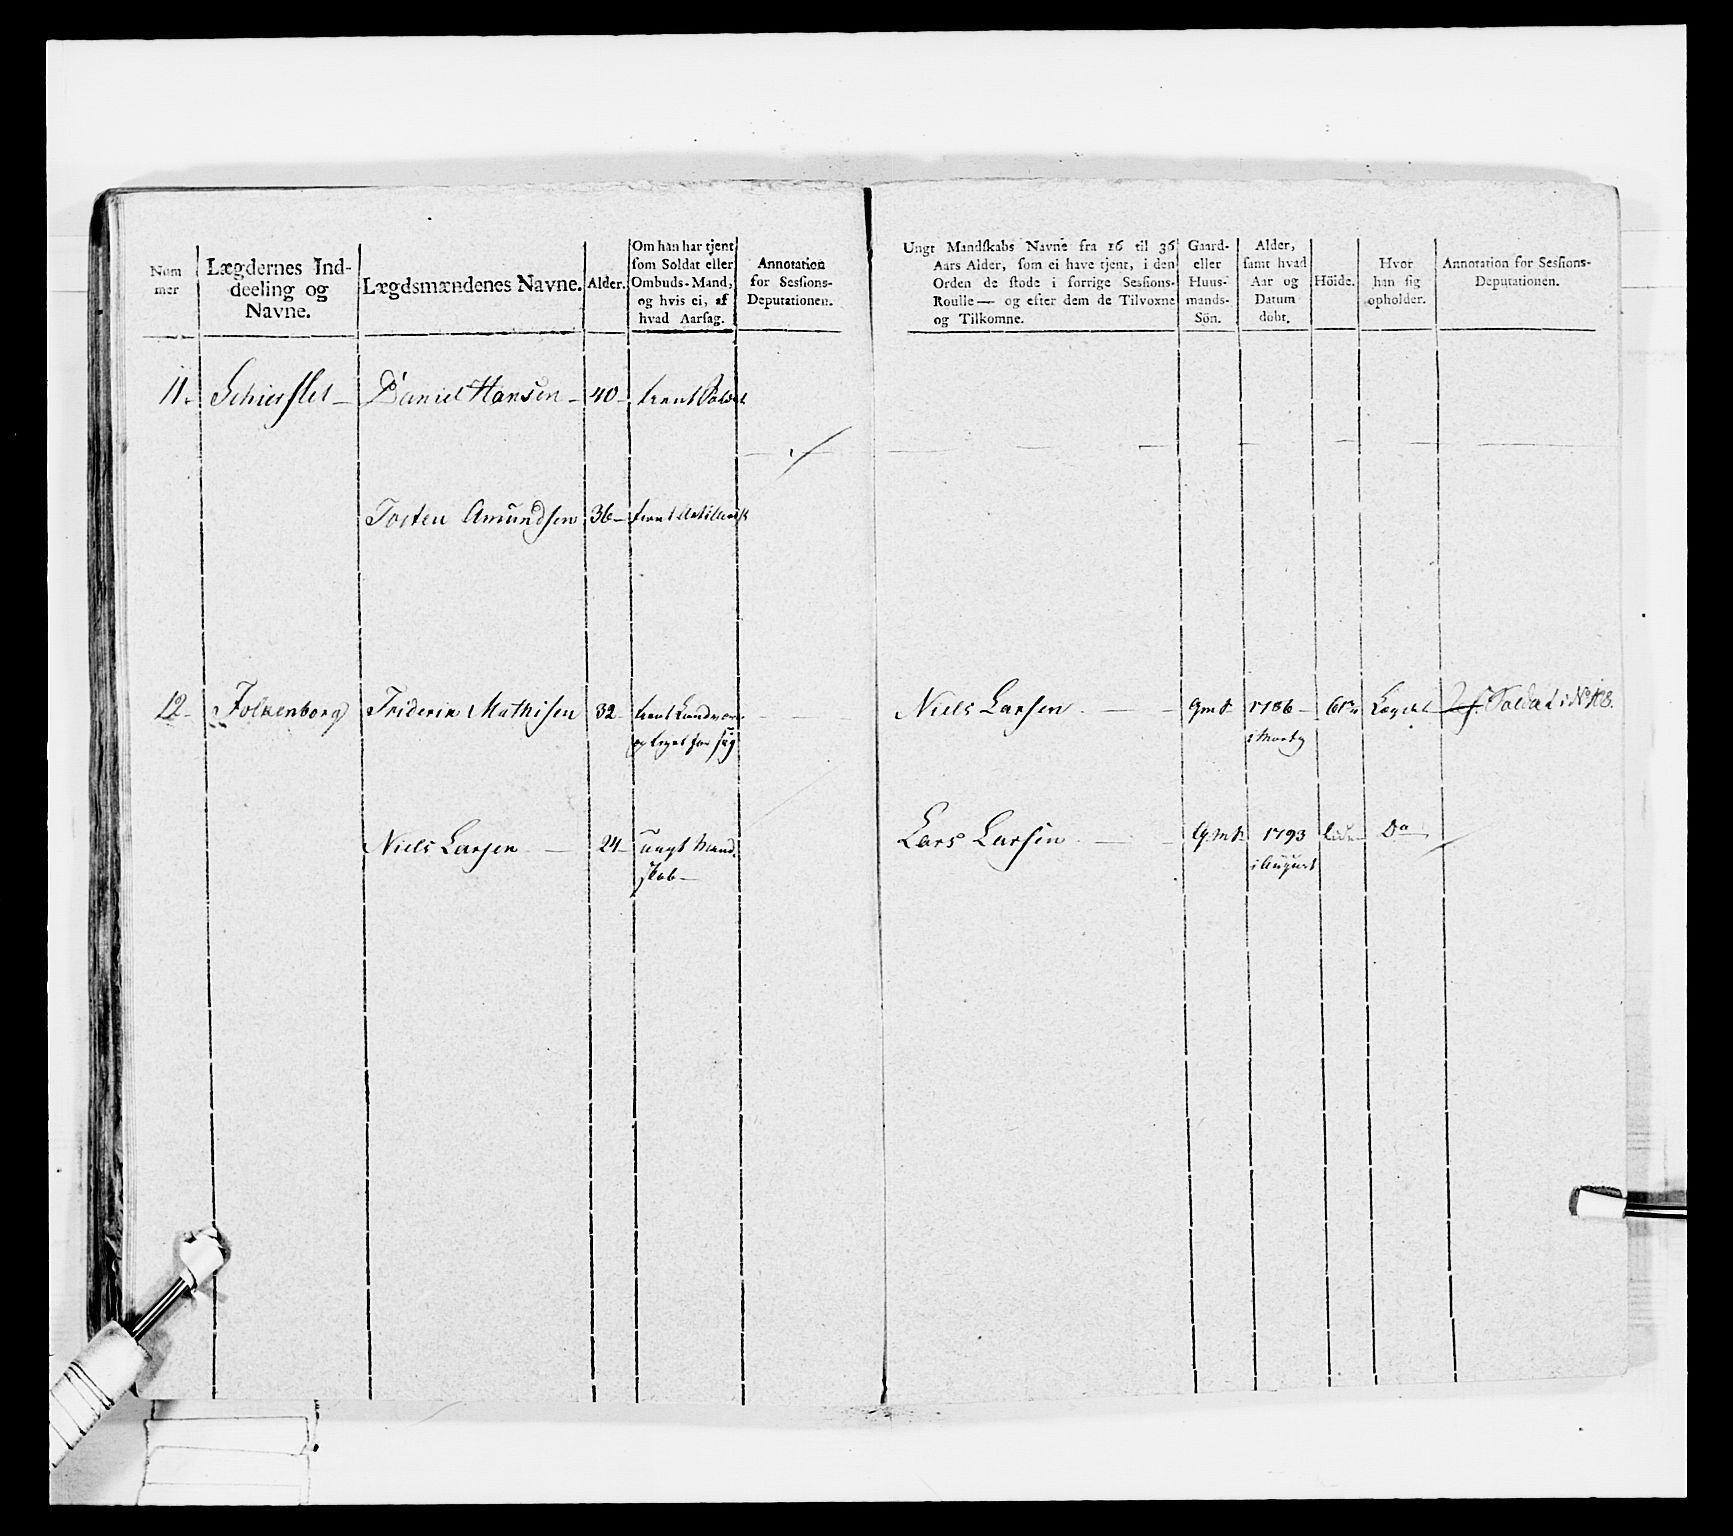 Num
mer
Lægdernes Ind-
deeling og
Navne.
Lægdsmændenes Navne.
Alder.
Om han har tjent
som Soldat eller
Ombuds-Mand,
og hvis ei, af
hvad Aarsag.
Annotation
for Sessions-
Deputationen.
Ungt Mandskabs Navne fra 16 til 36
Aars Alder, som ei have tjent, i den
Orden de stode i forrige Sessions-
Roulle — og efter dem de Tilvoxne
og Tilkomne.
Gaard-
eller
Huus-
mands-
Sön.
Alder,
samt hvad
Aar og
Datum
döbt.
Höide.
Hvor
han sig
opholder.
Annotation for Sessions-
Deputationen.
11. Daniel Hansen 40 tient Soldat
Tosten Amundsen 36
12 Folkenborg Friderik Mathisen 32 tient
Niels Larsen 1786 Lægdet Soldat i No
Niels Larsen 24 ungt Mand-
skab
Lars Larsen 1793 Do
i August